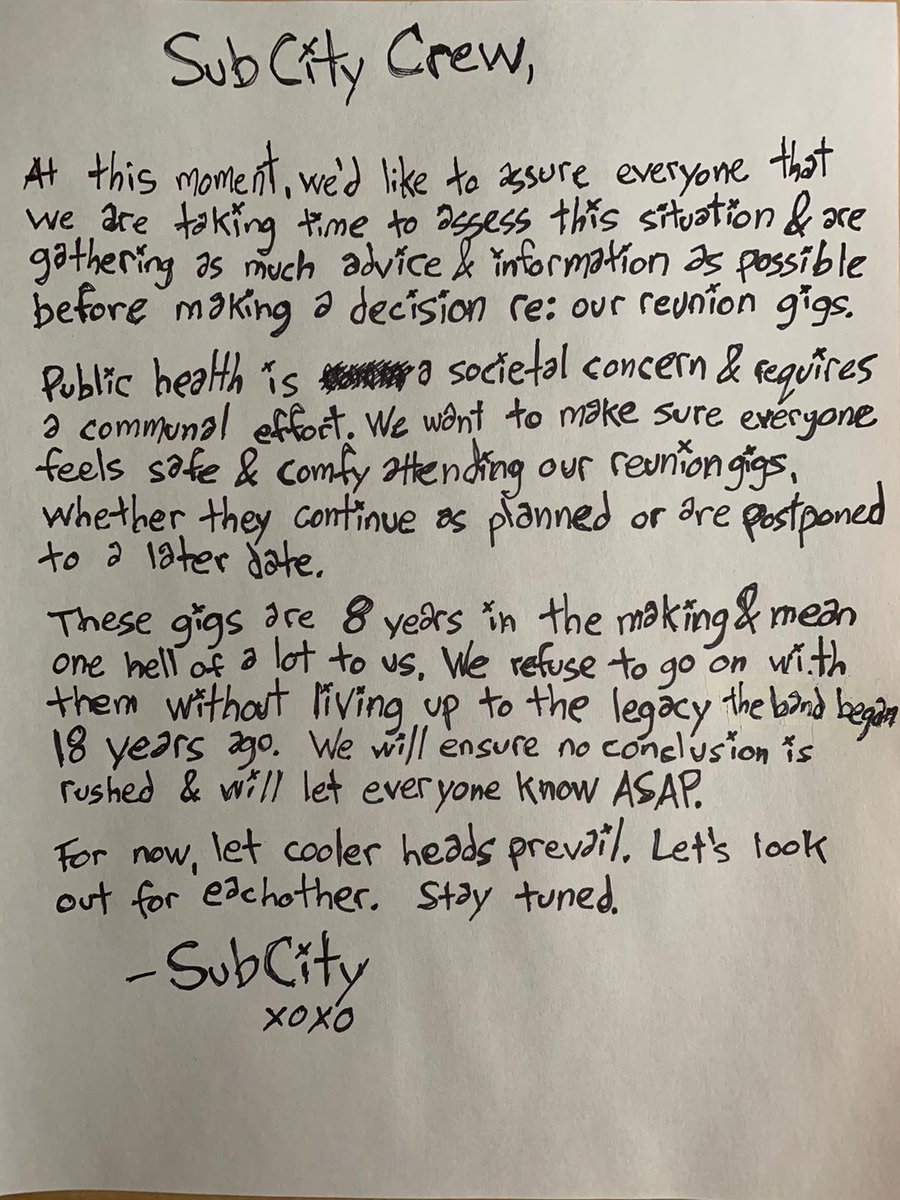 SubCity Crew,
At this moment, we'd like to assure everyone that
we are taking time to assess this situation & are
gathering as much advice & information as possible
before making a decision re: our reunion gigs.
Public health is a societal concern & requires
a communal effort. We want to make sure everyone
feels safe & comfy attending our reunion gigs,
whether they continue as planned or are postponed
to a later date.
These gigs are 8 years in the making & mean
one hell of a lot to us. We refuse to go on with
them without living up to the legacy the band began
18 years ago. We will ensure no conclusion is
rushed & will let everyone know ASAP.
For now, let cooler heads prevail. Let's look
out for eachother. Stay tuned.
- SubCity
xoxo